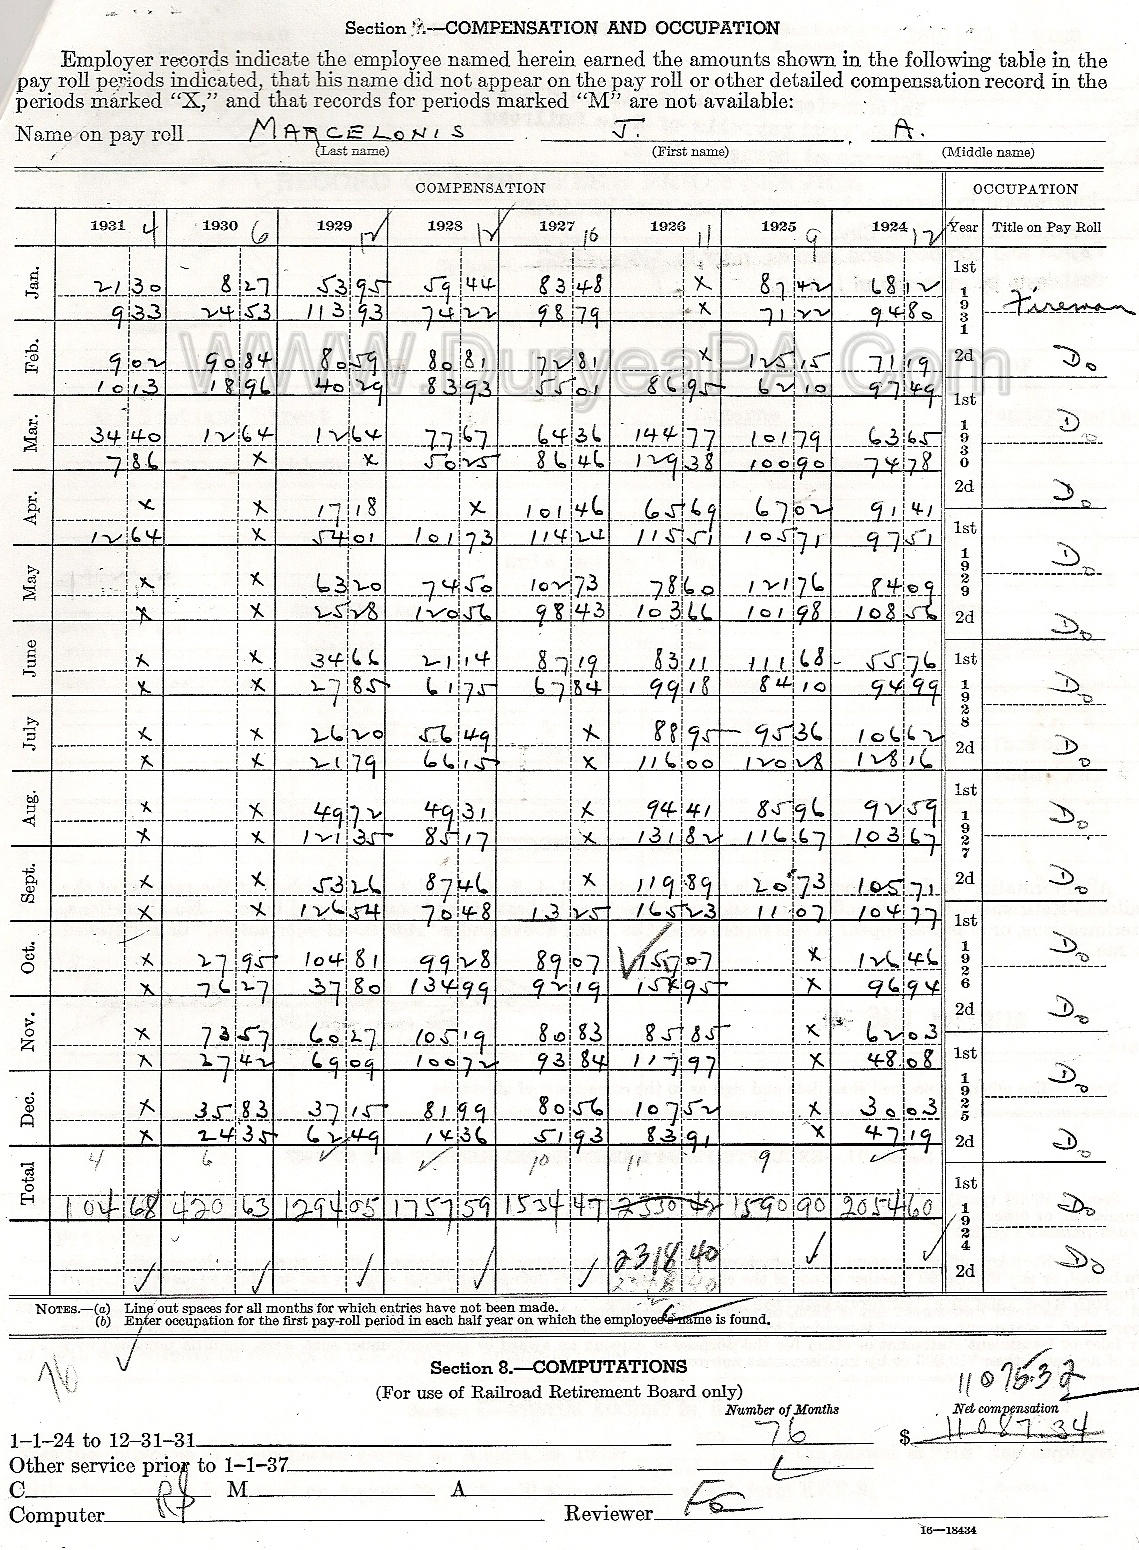 Section .—COMPENSATION AND OCCUPATION
Employer records indicate the employee named herein earned the amounts shown in the following table in the
pay roll periods indicated, that his name did not appear on the pay roll or other detailed compensation record in the
periods marked “X,” and that records for periods marked “M” are not available:
Name on pay roll MARCELONIS J. A.
(Last name) (First name) (Middle name)
COMPENSATION OCCUPATION
1931 4 1930 6 1929 12 1928 12 1927 10 1926 11 1925 9 1924 12 Year Title on Pay Roll
Jan. 21 30 8 27 53 95 59 44 83 48 x 87 42 68 12 1st 1931 Fireman
9 33 24 53 113 93 74 22 98 79 x 71 22 94 80
Feb. 9 02 90 84 80 59 80 81 72 81 x 125 15 71 19 2d Do
10 13 18 96 40 29 83 93 55 01 86 95 62 10 97 49
Mar. 34 40 12 64 12 64 77 67 64 36 144 77 101 79 63 65 1st 1930 Do
7 86 x x 50 25 86 46 129 38 100 90 74 78
Apr. x x 17 18 x 101 46 65 69 67 02 91 41 2d Do
12 64 x 54 01 101 73 114 24 115 51 105 71 97 51
May x x 63 20 74 50 102 73 78 60 121 76 84 09 1st 1929 Do
x x 25 28 120 56 98 43 103 66 101 98 108 56 2d Do
June x x 34 66 21 14 87 19 83 11 111 68 55 76 1st 1928 Do
x x 27 85 61 75 67 84 99 18 84 10 94 99
July x x 26 20 56 49 x 88 95 95 36 106 62 2d Do
x x 21 79 66 15 x 116 00 120 28 128 16
Aug. x x 49 72 49 31 x 94 41 85 96 92 59 1st 1927 Do
x x 121 35 85 17 x 131 82 116 67 103 67
Sept. x x 53 26 87 46 x 119 89 20 73 105 71 2d Do
x x 126 54 70 48 13 25 165 23 11 07 104 77
Oct. x 27 95 104 81 99 28 89 07 157 07 x 126 46 1st 1926 Do
x 76 27 37 80 134 99 92 19 x 96 94
Nov. x 73 57 60 27 105 19 80 83 85 85 x 62 03 2d Do
x 27 42 69 09 100 72 93 84 117 97 x 48 08 1st 1925 Do
Dec. x 35 83 37 15 81 99 80 56 107 52 x 30 03
x 24 35 62 49 14 36 51 93 83 91 x 47 19 2d Do
Total 4 6 10 11 9
104 68 420 63 1294 05 1757 59 1534 47 2330 42 1590 90 2054 60 1st 1924 Do
2318 40 2d Do
NOTES.—(a) Line out spaces for all months for which entries have not been made.
(b) Enter occupation for the first pay-roll period in each half year on which the employee's name is found.
76
Section 8.—COMPUTATIONS
(For use of Railroad Retirement Board only)
11075.32
Number of Months Net compensation
1–1–24 to 12–31–31 76 $ 11087.34
Other service prior to 1–1–37
C M A
Computer Reviewer
16—18434
WWW.DuryeaPA.Com